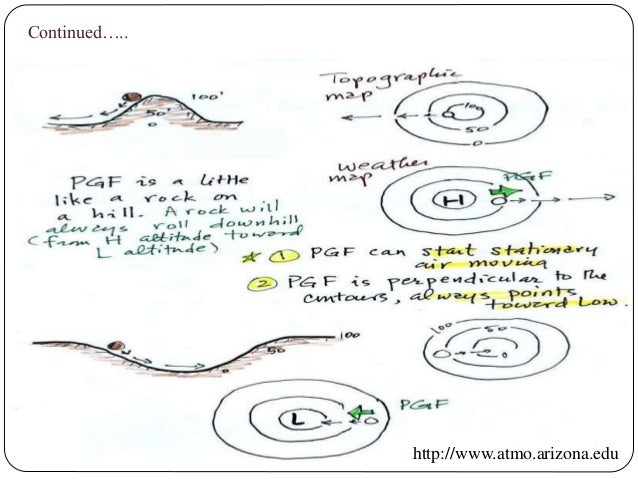 Continued…..
Topographic
map
100'
50'
0
100
50
0
Weather
map
PGF
H
PGF is a little
like a rock on
a hill. A rock will
always roll downhill
(from H altitude toward
L altitude)
① PGF can start stationary
air moving
② PGF is perpendicular to the
contours, always points
toward Low.
100
50
0
100
50
0
L
PGF
http://www.atmo.arizona.edu